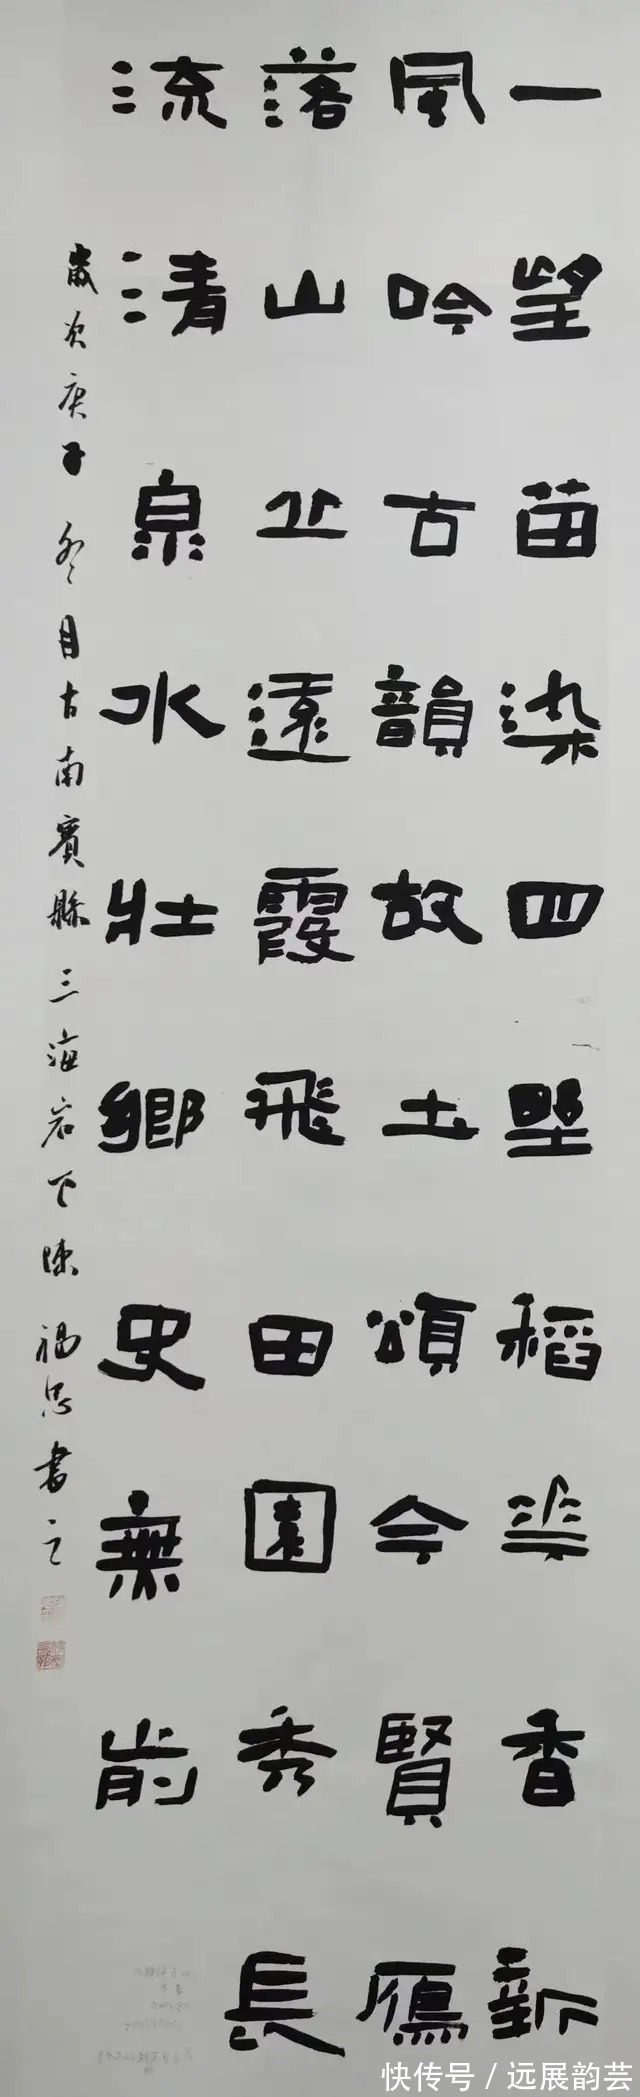 一望苗染四野稻華香新
風吟古韻故土頌今賢鴈
落山丘遠霞飛田園秀長
流清泉水壯鄉史無前
歲次庚子冬月古南賓縣三海岩下陳福忠書之
快传号 / 远展韵芸